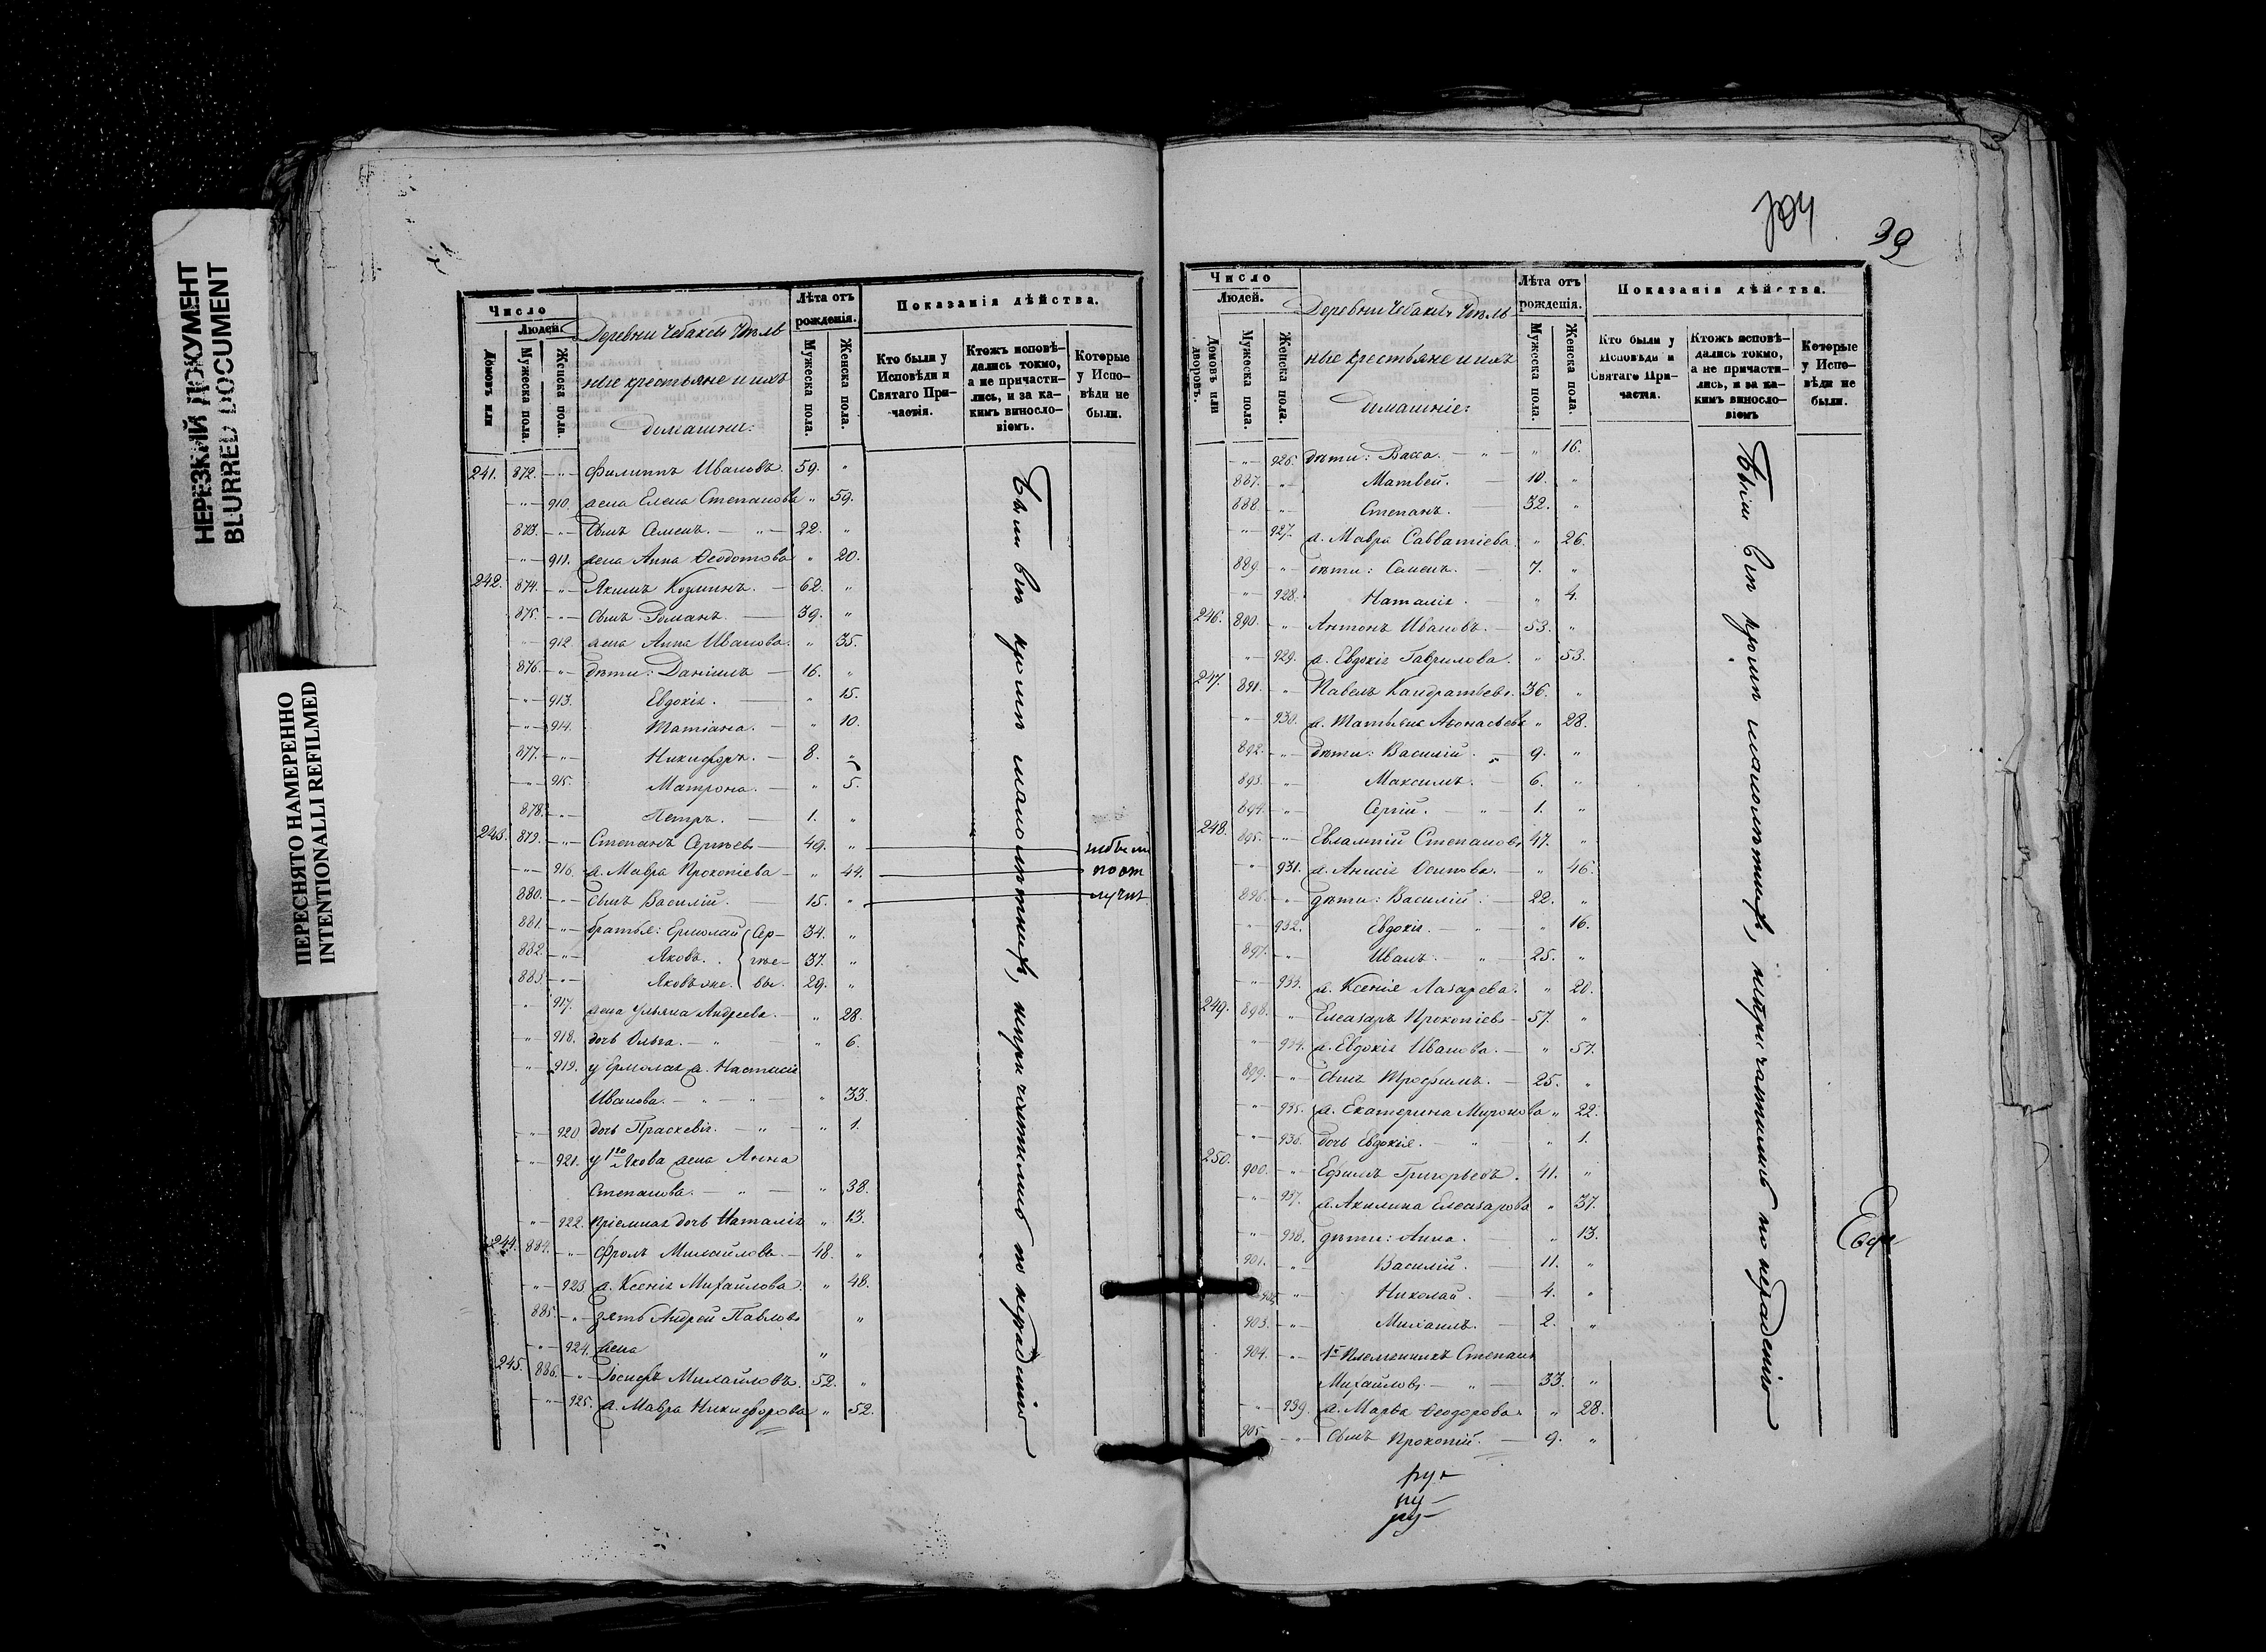 НЕРЕЗКИЙ ДОКУМЕНТ
BLURRED DOCUMENT
ПЕРЕСНЯТО НАМЕРЕННО
INTENTIONALLI REFILMED
Число
Людей.
Домовъ или
Мужеска пола.
Женска пола.
Деревни Чебаксы Удѣль
ные крестьяне и ихъ
домашни:
Лѣта отъ рожденія.
Мужеска пола.
Женска пола.
Показанія дѣйства.
Кто были у Исповѣди и Святаго Причастія.
Ктожъ исповѣдались токмо, а не причастились, и за какимъ винословіемъ.
Которые у Исповѣди не были.
241. 872. -„- Филиппъ Ивановъ. 59. „
-„- 910. жена Елена Степанова „ 59.
873. -„- Сынъ Семенъ. — „ — 22. „
-„- 911. жена Анна Ѳеодотова „ 20.
242. 874. -„- Якимъ Козминъ. — 62. „
875. -„- Сынъ Романъ. — 39. „
-„- 912. жена Анна Иванова. „ 35.
876. -„- дѣти: Даніилъ — 16. „
-„- 913. Евдокія. — „ 15.
-„- 914. Татіана. — „ 10.
877. -„- Никифоръ. — 8. „
-„- 915. Матрона. — „ 5.
878. -„- Петръ. — 1. „
243. 879. -„- Степанъ Сергѣевъ — 49. „ небыли
-„- 916. ж. Мавра Прокопіева — „ 44. по от
880. -„- Сынъ Василій. — 15. „ лучкѣ
881. -„- братья: Ермолай Сер- 34. „
882. -„- Яковъ. гѣе- 37. „
883. -„- Яковъ же. вы. 29. „
-„- 917. жена Ульяна Андреева. — „ 28.
-„- 918. дочь Ольга. — „ — „ 6.
-„- 919. у Ермолая ж. Настасія
Иванова. — „ — „ 33.
-„- 920 дочь Праскевія. — „ — „ 1.
-„- 921. у 1го Якова жена Анна
Степанова. — „ — „ 38.
-„- 922. пріемная дочь Наталія „ 13.
244. 884. -„- Фролъ Михайловъ. — 48. „
-„- 923. ж. Ксенія Михайлова. „ 48.
885. -„- зять Андрей Павловъ „
-„- 924. жена „
245. 886. -„- Іосифъ Михайловъ. 52. „
-„- 925. ж. Мавра Никифорова „ 52.
Были всѣ кромѣ малолѣтнихъ, непричастились по нерадѣнію
39
Число
Людей.
Домовъ или дворовъ.
Мужеска пола.
Женска пола.
Деревни Чебаксы Удѣль
ные крестьяне и ихъ
домашніе:
Лѣта отъ рожденія.
Мужеска пола.
Женска пола.
Показанія дѣйства.
Кто были у Исповѣди и Святаго Причастія.
Ктожъ исповѣдались токмо, а не причастились, и за какимъ винословіемъ
Которые у Исповѣди не были.
-„- 926. дѣти: Васса. — „ — „ 16.
887. -„- Матвей. — 10. „
888. -„- Степанъ. — 32. „
-„- 927. ж. Мавра Савватіева. „ 26.
889. -„- дѣти: Семенъ. — 7. „
-„- 928. Наталія. — „ 4.
246. 890. -„- Антонъ Ивановъ. — 53. „
-„- 929. ж. Евдокія Гаврилова. „ 53.
247. 891. -„- Павелъ Кандратьевъ. 36. „
-„- 930. ж. Татьяна Аѳонасьева „ 28.
892. -„- дѣти: Василій. — 9. „
893. -„- Максимъ. — 6. „
894. -„- Сергій. — „ — 1. „
248. 895. -„- Евлампій Степановъ 47. „
-„- 931. ж. Анисія Осипова. — „ 46.
896. -„- дѣти: Василій. — 22. „
-„- 932. Евдокія. — „ — „ 16.
897. -„- Иванъ. — „ — 25. „
-„- 933. ж. Ксенія Лазарева. „ 20.
249. 898. -„- Елеазаръ Прокопіевъ — 57. „
-„- 934. ж. Евдокія Иванова. — „ 57.
899. -„- Сынъ Трофимъ. — 25. „
-„- 935. ж. Екатерина Миронова „ 22.
-„- 936. дочь Евдокія. — „ — „ 1.
250. 900. -„- Ефимъ Григорьевъ. 41. „
-„- 937. ж. Акилина Елеазарова „ 37.
-„- 938. дѣти: Анна. — „ 13.
901. -„- Василій. — 11. „
902. -„- Николай. — 4. „
903. -„- Михаилъ. — 2. „
904. -„- 1й Племянникъ Степанъ
Михайловъ. — „ — 33. „
-„- 939. ж. Марья Ѳеодорова. „ 28.
905. -„- Сынъ Прокопій. — 9. „
Были всѣ кромѣ малолѣтнихъ, непричастились по нерадѣнію